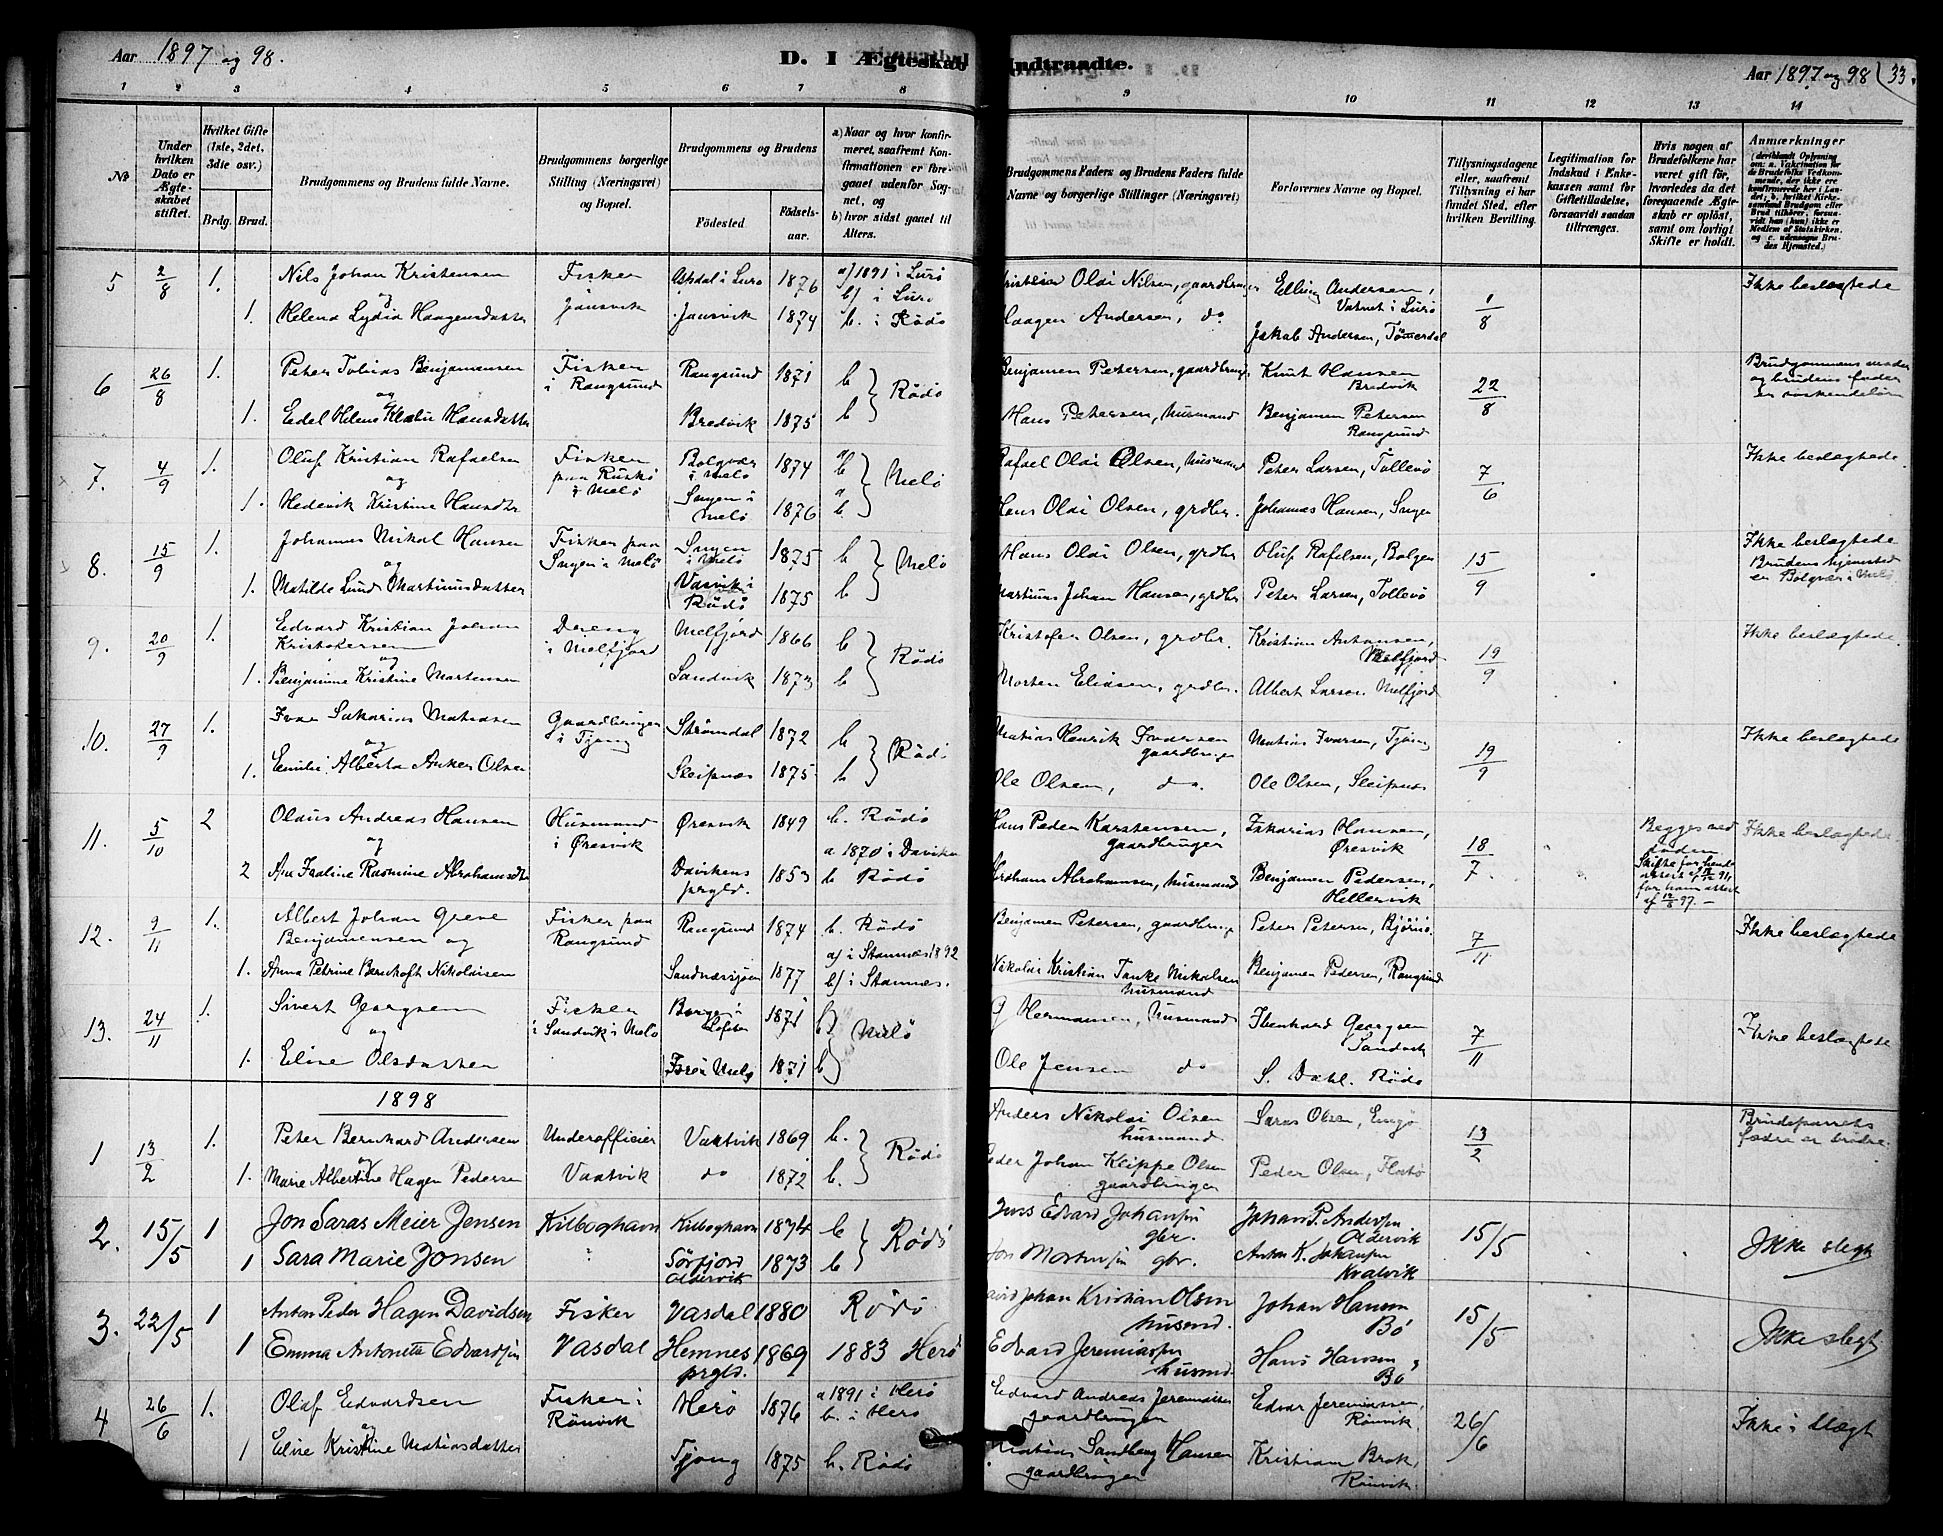 Aar 1897 og 98.
D. I Ægteskab Indtraadte.
Aar 1897 og 98
33.
1 2 3 4 5 6 7 8 9 10 11 12 13 14
No
Under hvilken Dato er Ægteskabet stiftet.
Hvilket Gifte (1ste, 2det, 3dte osv.)
Brdg. Brud.
Brudgommens og Brudens fulde Navne.
Brudgommens borgerlige Stilling (Næringsvei) og Bopæl.
Brudgommens og Brudens
Fødested
Fødselsaar.
a) Naar og hvor konfirmeret, saafremt Konfirmationen er foregaaet udenfor Sognet, og
b) hvor sidst gaaet til Alters.
Brudgommens Faders og Brudens Faders fulde Navne og borgerlige Stillinger (Næringsvei)
Forlovernes Navne og Bopæl.
Tillysningsdagene eller, saafremt Tillysning ei har fundet Sted, efter hvilken Bevilling.
Legitimation for Indskud i Enkekassen samt for Giftetilladelse, forsaavidt saadan tiltrænges.
Hvis nogen af Brudefolkene har været gift før, hvorledes da det foregaaende Ægteskab er opløst, samt om lovligt Skifte er holdt.
Anmærkninger
5 2/8 1. Nils Johan Kristensen Fisker i Luro 1876 a) 1891 i Lurö Olai Nilsen, gaardbruger Elling Andersen, 1/8 Ikke beslægtede
og Jansvik b) i Lurö Vatnet i Lurö
1. Helena Lydia Haagensdatter Jansvik 1874 b. i Rödö Haagen Andersen, do Jakob Andersen, Tömerdal
6 26/8 1. Peter Tobias Benjaminsen Fisker Rangsund 1871 b Rödö Benjamin Petersen, gaardbruger Knut Hansen 22/8 Brudgommens moder
og i Rangsund Bredvik og brudens fader
1. Edel Helene Hansdatter Bredvik 1875 b Hans Petersen, husmand Benjamin Petersen er söskendebörn
Rangsund
7. 4/9 1. Oluf Kristian Rafaelsen Fisker Bolgvær 1874 Melö Rafael Olai Olsen, husmand Peter Larsen, Tollevö 7/6 Ikke beslægtede
og i Melö i Melö
1. Hedevik Kristine Hansdtr i Melö 1876 b. Hans Olai Olsen, grdbr. Johannes Hansen,
8. 15/9 1. Johannes Mikal Hansen Fisker paa i Melö 1875 b Melö Hans Olai Olsen, grdbr Oluf Rafelsen, Bolgen 15/9 Ikke beslægtede
og i Melö Brudens hjemsted
1. Matilde Lund Martinusdatter Vasvik i Rödö 1875 b Martinus Johan Hansen, grdbr Peter Larsen, Tollevö er Bolgvær i Melö
9. 20/9 1. Edvard Kristian Johan Dreng Melfjord 1866 b Rödö Kristofer Olsen, grdbr. Kristian Antonsen, 19/9 Ikke beslægtede
Kristofersen og i Melfjord Melfjord
1. Benjamine Kristine Mortensen Sandvik 1873 b Morten Eliasen, grdbr. Albert Larsen, Melfjord
10. 27/9 1. Ivar Sakarias Matiasen Gaardbruger Strömdal 1872 b Rödö Matias Henrik Ivarsen Matias Ivarsen, Tjong 19/9 Ikke beslægtede
og i Tjong gaardbruger
1. Emilie Alberta Anker Olsen Sleipnes 1875 b Ole Olsen, do. Ole Olsen, Sleipnes
11. 5/10 2 Olaus Andreas Hansen Husmand Öresvik 1849 b. Rödö Hans Peder Karstensen, Zakarias Hansen, 18/7. Begges ved Ikke beslægtede
og i Öresvik a. 1870 i Daviken gaardbruger Öresvik döden
2 Ane Paaline Rasmine Abrahamsdtr Davikens prgld. 1853 b Rödö Abraham Abrahamsen, husmand Benjamin Pedersen, Skifte for hende
Hellervik
for ham
12. 9/11 1. Albert Johan Greve Fisker paa Rangsund 1874 b. Rödö Benjamin Petersen, gaardbruger Peter Petersen, Bjärö. 7/11 Ikke beslægtede
Benjaminsen og Rangsund a) i Stamnes 1892
1. Anna Petrine Bernhoft Nikolaisen Sandnessjöen 1877 b) i Stamnes. Nikolai Kristian Tanke Nikolaisen Benjamin Pedersen, Rangsund
husmand
13. 24/11 1. Sivert Georgsen Fisker Borge i Lofoten 1871 b Melö G Hermansen, husmand Georgsen 7/11 Ikke beslægtede
og i Sandvik i Melö Sandvik
1. Elise Olsdatter Forö i Melö 1871 b Ole Jensen do S. Dahl. Rödö
1898
1 13/2 1. Peter Bernhard Andersen Underofficier Vaatvik 1869 b. Rödö Anders Nikolai Olsen Saras Olsen, Engö 13/2 Brudeparrets
og husmand fædre er brödre.
1. Marie Albertine Hagen Pedersen Vaatvik do 1872 b. Peder Johan Klippe Olsen Peder Olsen, Flatö
gaardbruger
2. 15/5 1 Jon Saras Meier Jensen Kilboghavn Kilboghavn 1874 b Rödö Jens Edvard Johansen Johan P. Andersen 15/5 Ikke slegt
gbr. Oldervik
1 Sara Marie Jonsen Sörfjord 1873 b Jon Mortensen gbr. Anton K. Johansen
Oldervik Kvalvik
3. 22/5 1 Anton Peder Hagen Davidsen Fisker Vasdal 1880 Rödö David Johan Kristian Olsen Johan Hansen 15/5 Ikke slegt
husmd. Bö
1 Emma Antonette Edvardsen Vasdal Hemnes prgld. 1869 1883 Herö Edvard Jeremiassen Hans Hansen,
husmd. Bö
4 26/6 1. Olaf Edvardsen Fisker i Herö 1876 a 1891 i Herö Edvard Andreas Jeremiassen Edvar Jeremiassen, 26/6 Ikke i Slægt
og Rönvik b. i Herö gaardbruger Rönvik
1 Elise Kristine Matiasdatter Tjong 1875 b. Rödö Matias Sandberg Hansen Kristian Brok,
gaardbruger Rönvik.